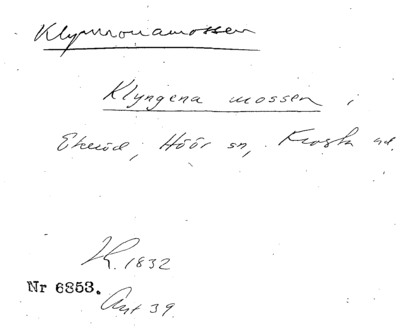 Klyngena mossen i
Ekeröd, Höör sn, Frosta hd.
1832
Nr 6853.
Ant 39.